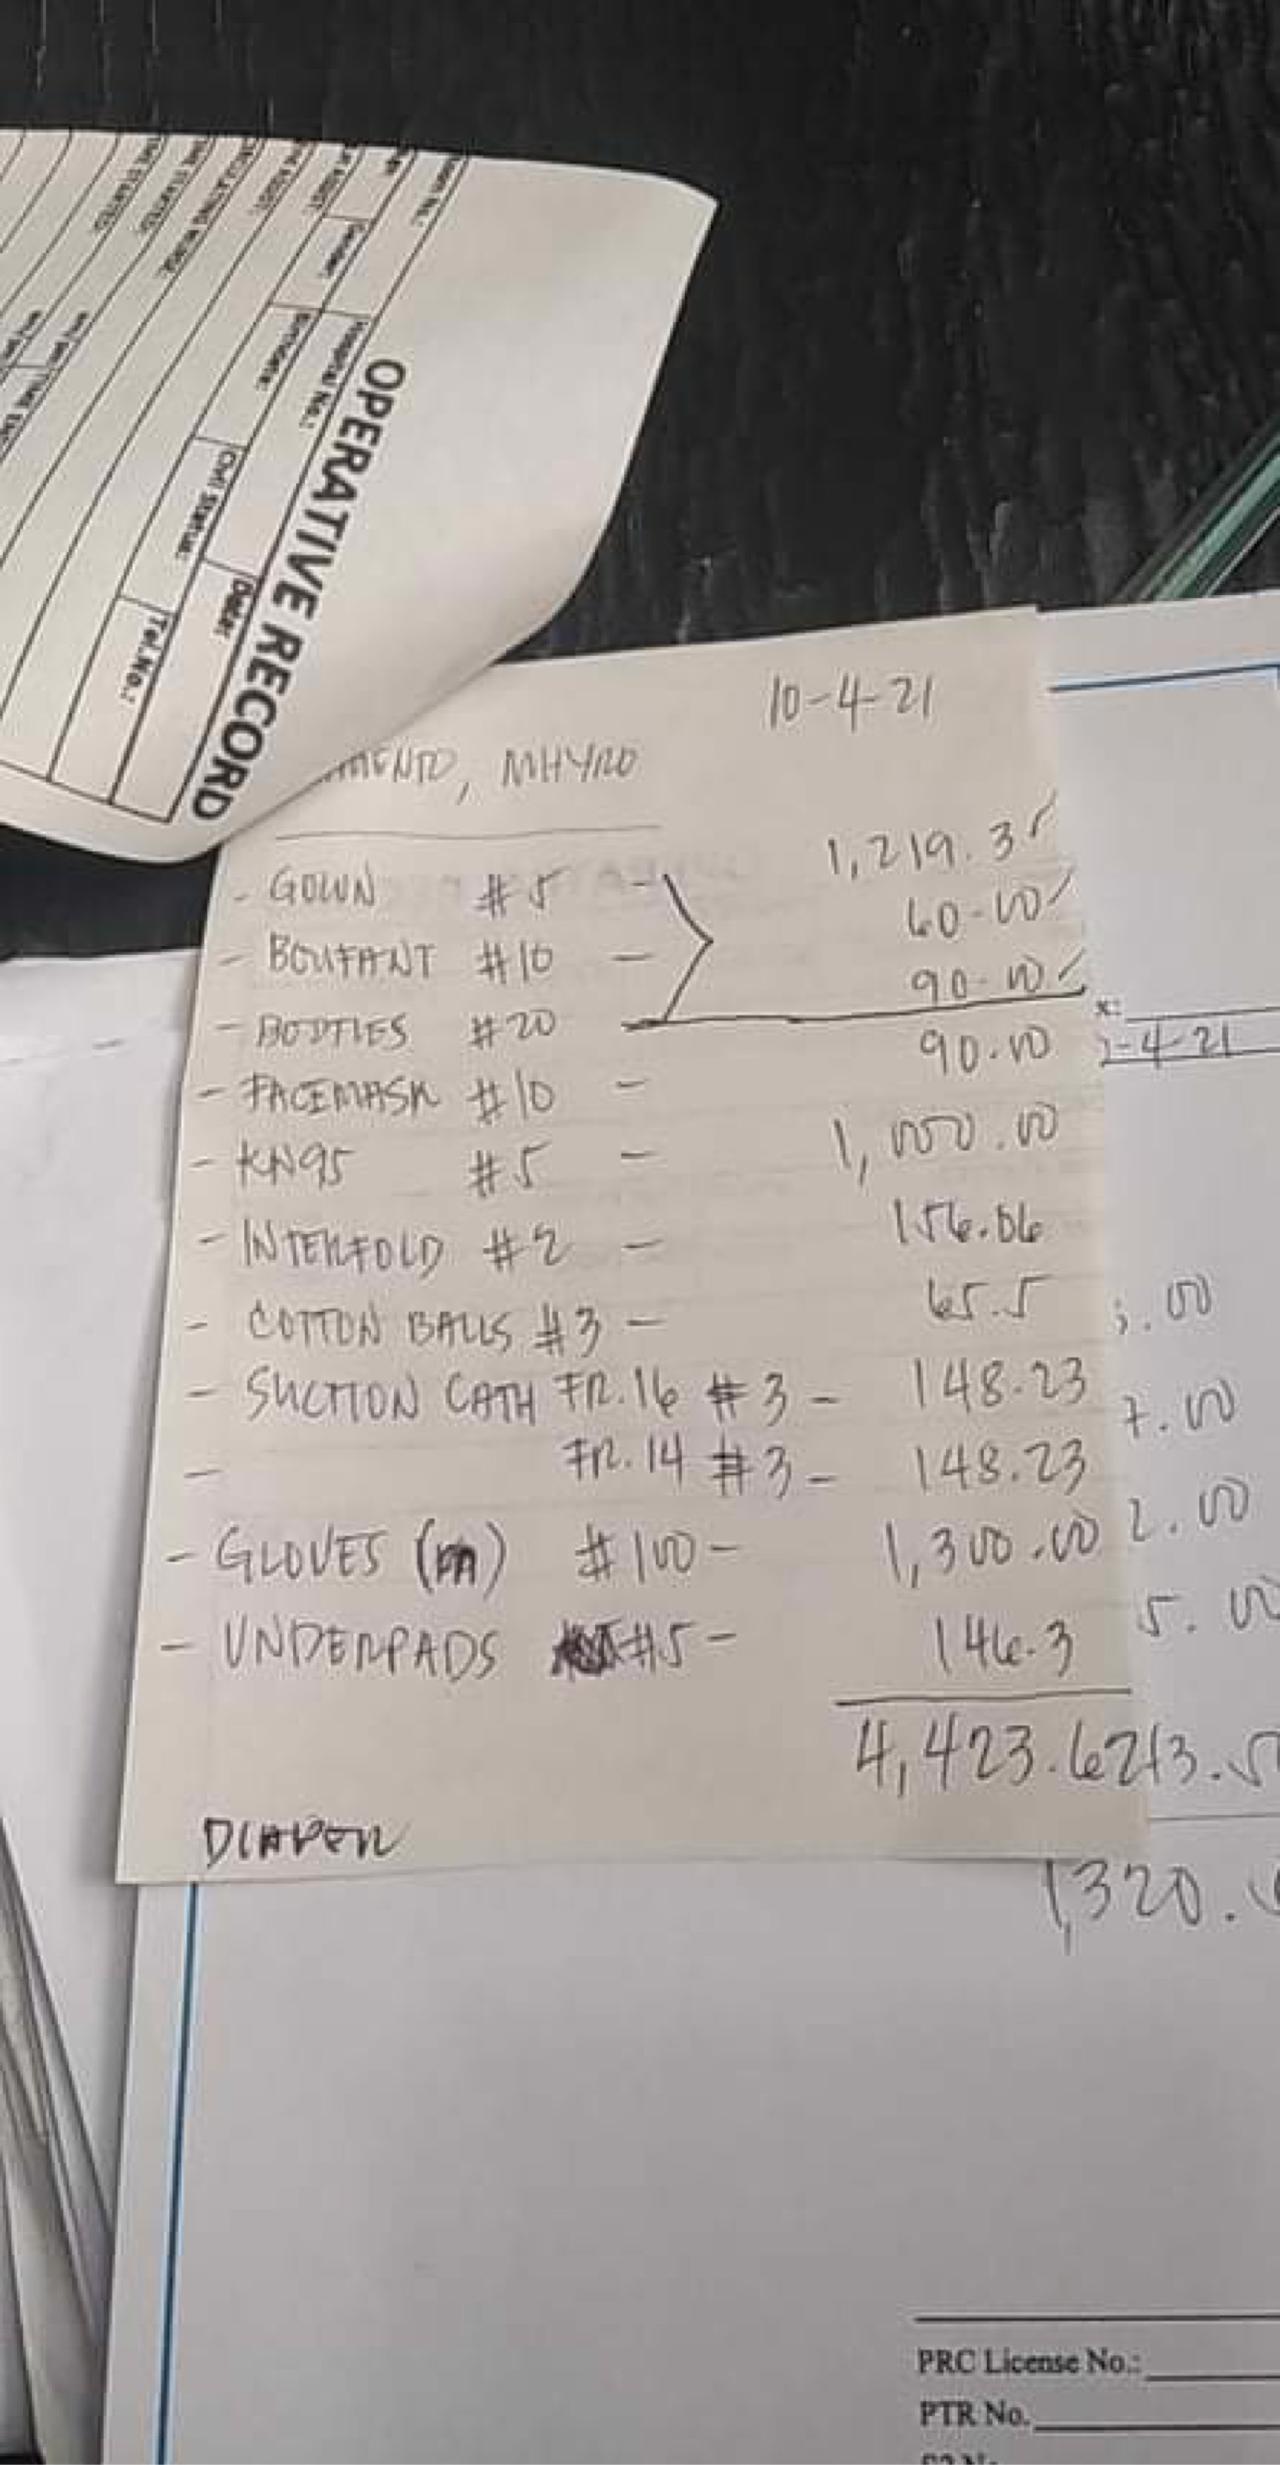 OPERATIVE RECORD
Hospital No.:
Date:
Gender:
Birthdate:
Civil Status:
Tel.No.:
CIRCULATING NURSE:
TIME STARTED:
10-4-21
MHYRO
- GOWN #5 - 1,219.35
- BOUFANT #10 - 60.00
- BOOTIES #20 90.00
- FACEMASK #10 - 90.00
- KN95 #5 - 1,000.00
- INTERFOLD #2 - 156.06
- COTTON BALLS #3 - 65.5
- SUCTION CATH FR.16 #3 - 148.23
- FR.14 #3 - 148.23
- GLOVES #100 - 1,300.00
- UNDERPADS #5 - 146.3
4,423.6
DIAPER
-4-21
.00
7.00
2.00
5.00
213.50
1,320.
PRC License No.:
PTR No.